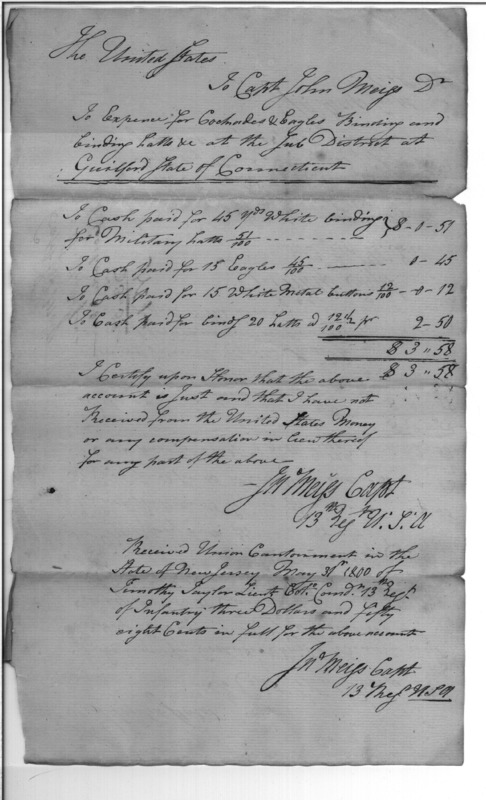 The United States
To Capt John Meigs Dr
To Expence for Cockades & Eagles Binding and
binding hatts &c at the Sub District at
Guilford State of Connecticut
To Cash paid for 45 yds White binding
for Military hatts 51/100 - - - - - } $ - 0 - 51
To Cash paid for 15 Eagles 45/100 - 0 - 45
To Cash paid for 15 White Metal buttons 12/100 - 0 - 12
To Cash paid for bindg 20 hatts @ 12½/100 pr 2 - 50
$ 3 " 58
$ 3 " 58
I Certify upon Honor that the above
account is Just and that I have not
Received from the United States Money
or any compensation in lieu thereof
for any part of the above -
Jno Meigs Capt
13th Regt U. S. A
Received Union Cantonment in the
State of New Jersey May 31st 1800 of
Timothy Taylor Lieut Colo Comdt 13th Regt
of Infantry three Dollars and fifty
eight Cents in full for the above account
Jno Meigs Capt
13 Regt U S A